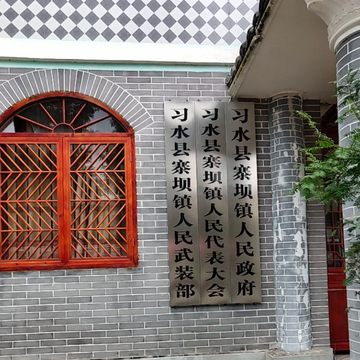 习水县寨坝镇人民政府
习水县寨坝镇人民代表大会
习水县寨坝镇人民武装部